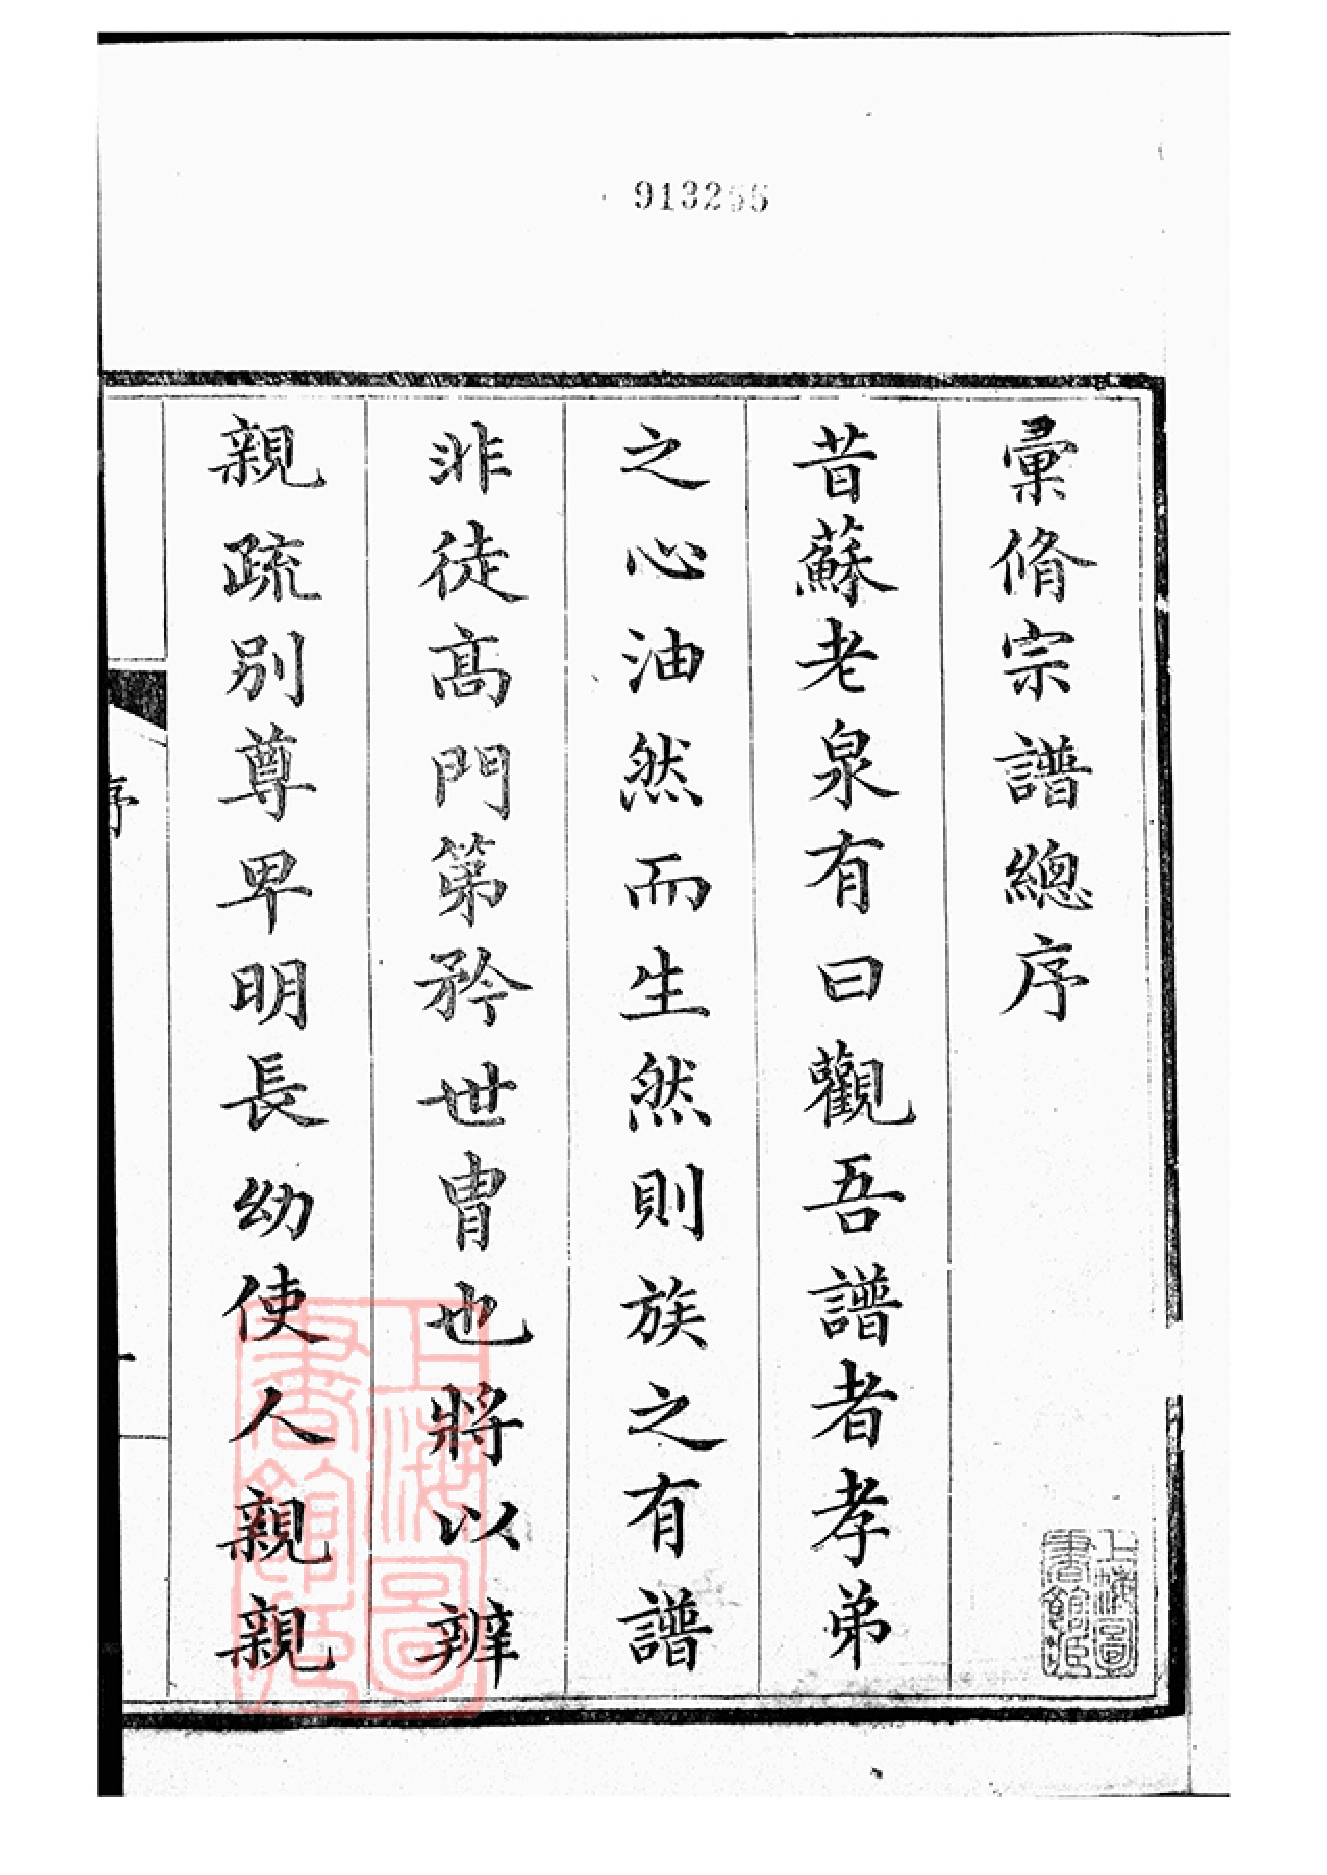 913255
彙脩宗譜總序
昔蘇老泉有曰觀吾譜者孝弟
之心油然而生然則族之有譜
非徒高門第矜世冑也將以辨
親疏别尊卑明長幼使人親親
序
一
上海圖書館藏
上海圖書館藏